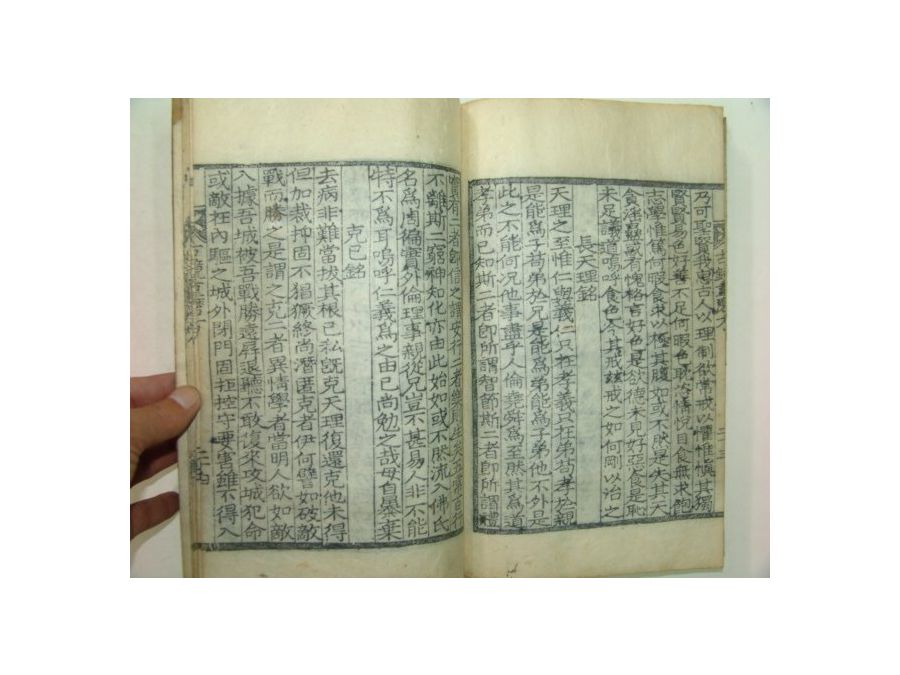 乃可聖賢
古人以理制欲常戒以懼惟愼其獨
賢賢易色好善不足何暇色
悅目食無求飽
志學惟篤何暇食求以極其腹如或不然是失其大
好色是欲德未見好惡食是恥
未足議道嗚呼食色人其戒
戒之如何剛以治之
長天理銘
天理之至惟仁與義仁只在孝義只在弟苟孝於親
是能爲子苟弟於兄是能爲弟能爲子弟他不外是
此之不能何況他事盡乎人倫堯舜爲至然其爲道
孝弟而已知斯二者卽所謂智節斯二者卽所謂禮
實有二者卽信之謂安行二者
不離斯二窮神知化亦由此始如或不然流入佛氏
名爲周徧實外倫理事親從兄豈不甚易人非不能
特不爲耳嗚呼仁義爲之由已尚勉之哉毋自暴棄
克已銘
去病非難當拔其根已私旣克天理復還克他未得
但加裁抑固不猖獗終尚潛匿克者伊何譬如破敵
戰而勝之是謂之克二者異情學者當明人欲如敵
入據吾城被吾戰勝遠屛退聽不敢復來攻城犯命
或敵在內驅之城外閉門固拒控守要害雖不得入